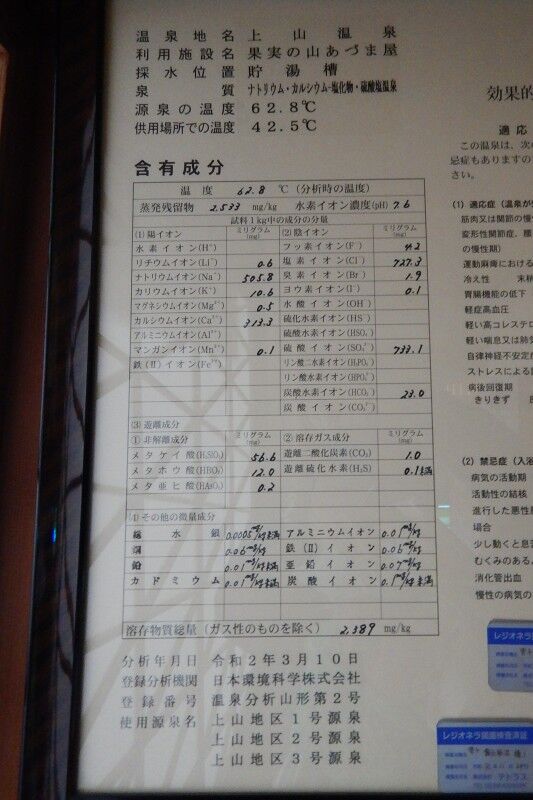 温泉地名 上山温泉
利用施設名 果実の山あづま屋
採水位置 貯湯槽
泉質 ナトリウム・カルシウム-塩化物・硫酸塩温泉
源泉の温度 62.8℃
供用場所での温度 42.5℃
含有成分
温度 62.8 ℃(分析時の温度)
蒸発残留物 2.533 mg/kg 水素イオン濃度(pH) 7.6
試料1kg中の成分の分量
(1)陽イオン ミリグラム(mg) (2)陰イオン ミリグラム(mg)
水素イオン(H⁺) フッ素イオン(F⁻)
リチウムイオン(Li⁺) 0.6 塩素イオン(Cl⁻) 727.3
ナトリウムイオン(Na⁺) 505.8 臭素イオン(Br⁻) 1.9
カリウムイオン(K⁺) 10.6 ヨウ素イオン(I⁻) 0.1
マグネシウムイオン(Mg²⁺) 0.5 水酸イオン(OH⁻)
カルシウムイオン(Ca²⁺) 313.3 硫化水素イオン(HS⁻)
アルミニウムイオン(Al³⁺) 硫酸水素イオン(HSO₄⁻)
マンガンイオン(Mn²⁺) 0.1 硫酸イオン(SO₄²⁻) 733.1
鉄(Ⅱ)イオン(Fe²⁺) リン酸二水素イオン(H₂PO₄⁻)
リン酸水素イオン(HPO₄²⁻)
炭酸水素イオン(HCO₃⁻) 23.0
炭酸イオン(CO₃²⁻)
(3)遊離成分
①非解離成分 ミリグラム(mg) ②溶存ガス成分 ミリグラム(mg)
メタケイ酸(H₂SiO₃) 56.6 遊離二酸化炭素(CO₂) 1.0
メタホウ酸(HBO₂) 12.0 遊離硫化水素(H₂S) 0.1未満
メタ亜ヒ酸(HAsO₂) 0.2
(4)その他の微量成分
総水銀 0.0005mg/kg未満 アルミニウムイオン 0.01mg/kg
銅 0.06mg/kg 鉄(Ⅱ)イオン 0.06mg/kg
鉛 0.01mg/kg未満 亜鉛イオン 0.07mg/kg
カドミウム 0.01mg/kg未満 炭酸イオン 0.1mg/kg未満
溶存物質総量(ガス性のものを除く) 2.389 mg/kg
分析年月日 令和2年3月10日
登録分析機関 日本環境科学株式会社
登録番号 温泉分析山形第2号
使用源泉名 上山地区1号源泉
上山地区2号源泉
上山地区3号源泉
効果的
適応
この温泉は、次の
忌症もありますの
さい。
(1) 適応症(温泉が
筋肉又は関節の慢
変形性関節症、腰
の慢性期)
運動麻痺における
冷え性 末梢
胃腸機能の低下
軽症高血圧
軽い高コレステロ
軽い喘息又は肺気
自律神経不安定
ストレスによる
病後回復期
きりきず
(2) 禁忌症(入浴
病気の活動期
活動性の結核
進行した悪性
場合
少し動くと息
むくみのある
消化管出血
慢性の病気の
レジオネラ
レジオネラ属菌検査済証